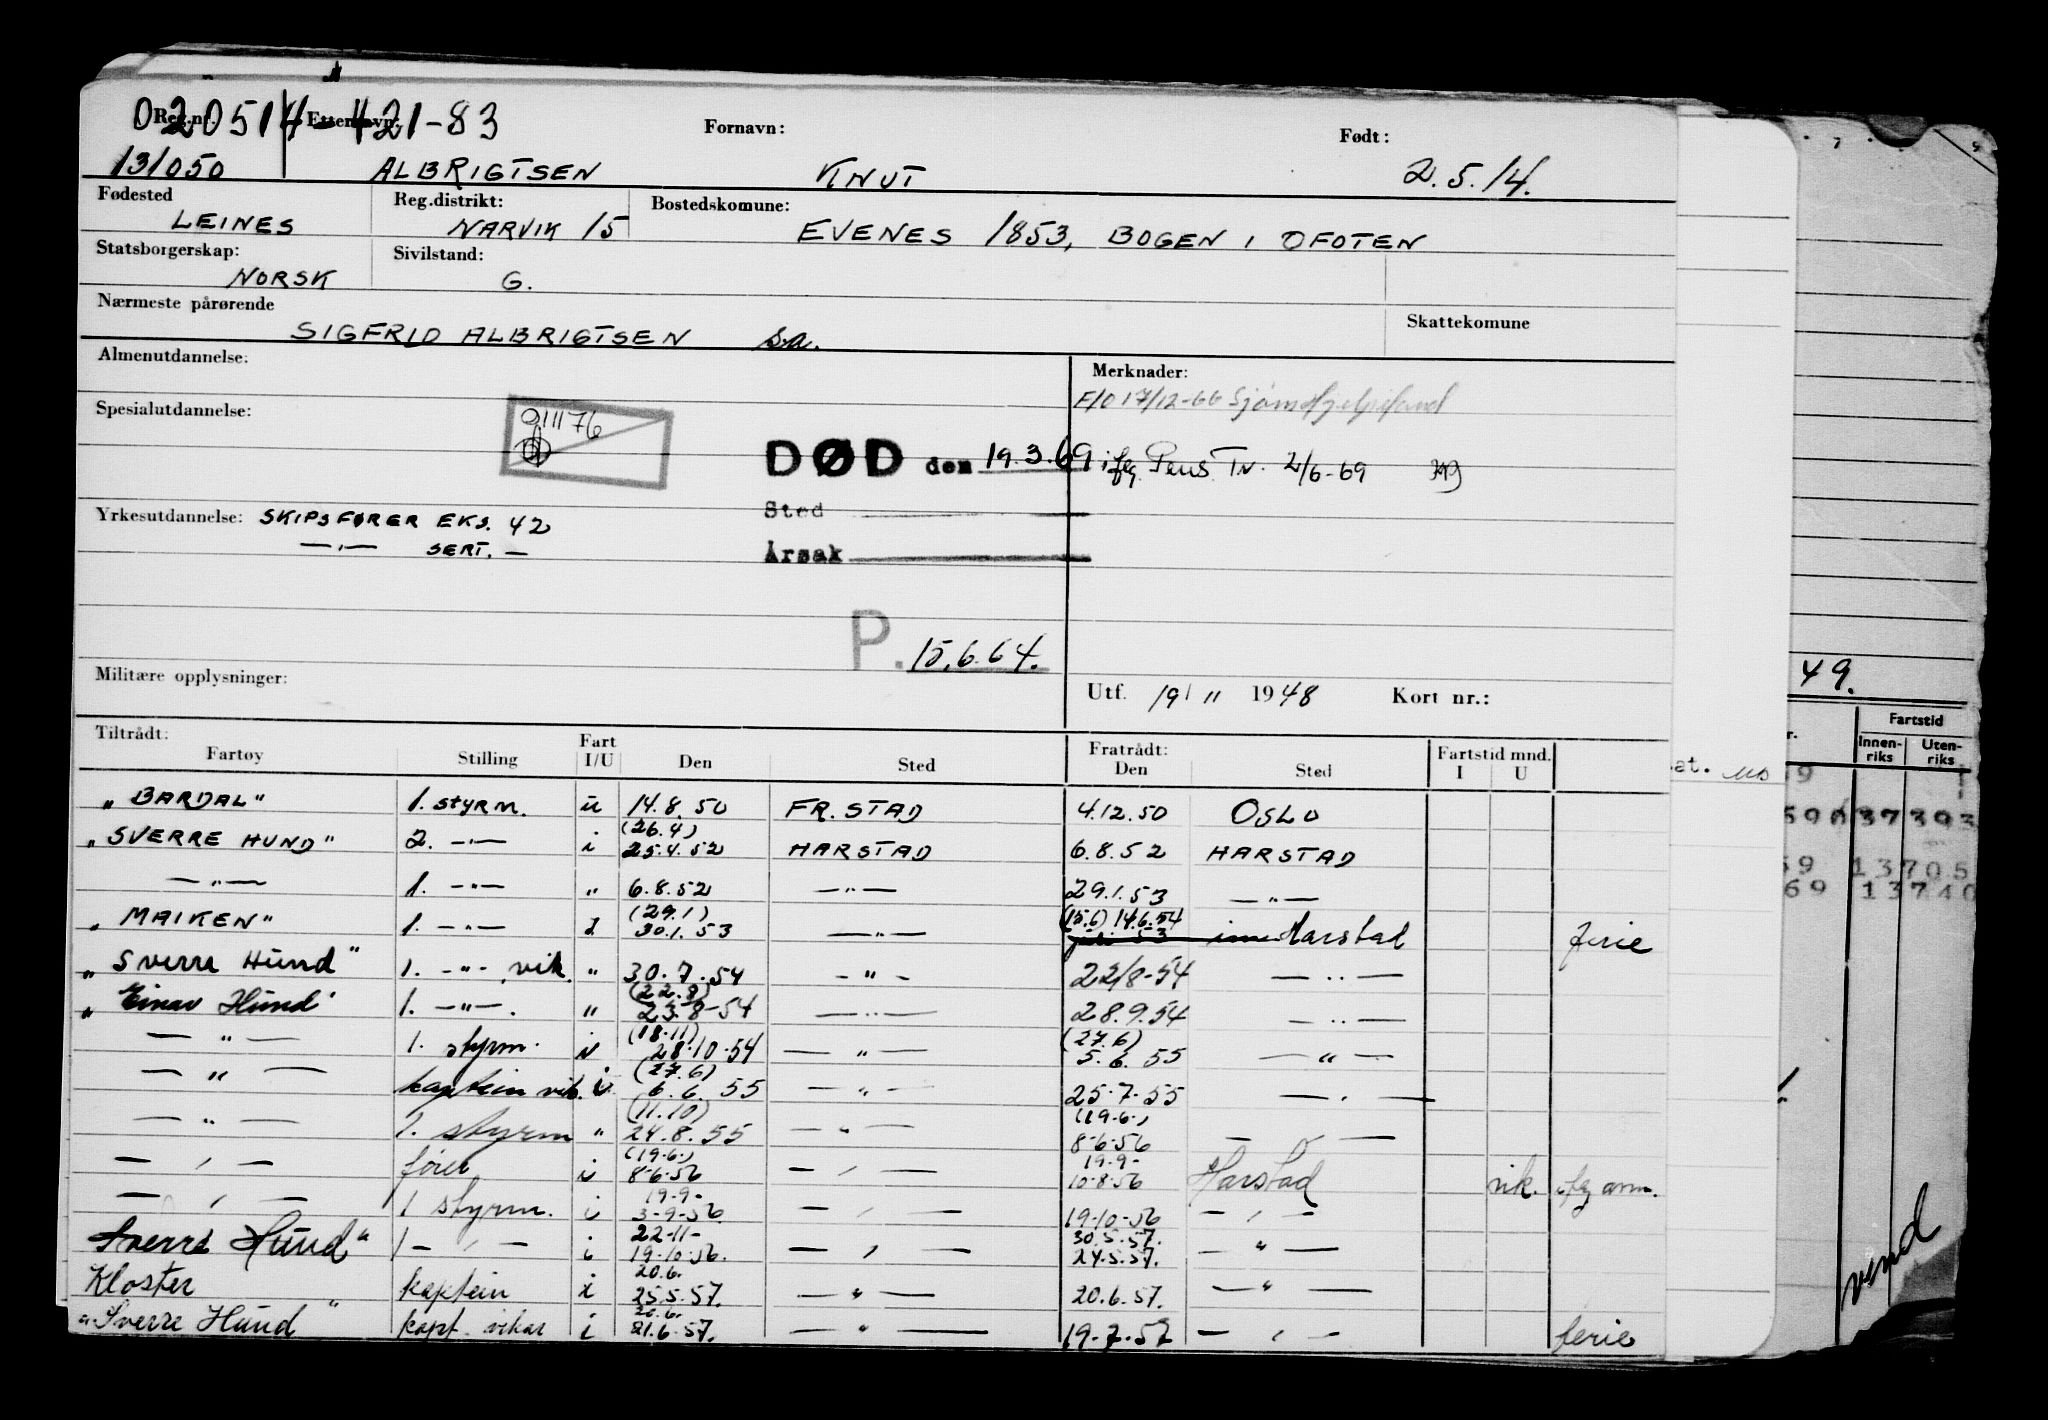 020514-421-83
Reg.nr. Etternavn: Fornavn: Født:
131050 ALBRIGTSEN KNUT 2.5.14.
Fødested Reg.distrikt: Bostedskomune:
LEINES NARVIK 15 EVENES 1853, BOGEN I OFOTEN
Statsborgerskap: Sivilstand:
NORSK G.
Nærmeste pårørende Skattekomune
SIGFRID ALBRIGTSEN s.a.
Almenutdannelse: Merknader:
F/O 17/12-66
Spesialutdannelse:
011176
DØD den 19.3.69 ifg. Pens Tr. 2/6-69
Sted
Yrkesutdannelse: SKIPSFØRER EKS. 42
—"— SERT. —
Årsak
P. 15.6.64.
Militære opplysninger:
Utf. 19/11 1948 Kort nr.:
49.
Tiltrådt: Fart Fratrådt: Fartstid mnd. Fartstid
Fartøy Stilling I/U Den Sted Den Sted I U Innen-riks Uten-riks
"BARDAL" 1. STYRM. u 14.8.50 FR.STAD 4.12.50 OSLO
"SVERRE HUND" 2. —"— i (26.4) 25.4.52 HARSTAD 6.8.52 HARSTAD
—"— 1. —"— " 6.8.52 —"— 29.1.53 —"—
"MAIKEN" 1. —"— (29.1) 30.1.53 —"— (15.6) 14.6.54 Harstad ferie
"Sverre Hund" 1. -"- vik. " 30.7.54 -"- 22/8-54 —"—
"Einar Hund" 1. —"—. " (22.8) 23-8-54 —"— 28.9.54 —"—
—"— 1. styrm. (18.11) 28.10.54 —"— (27.6) 5.6.55 —"—
—"— kaptein vik. i (27.6) 6.6.55 —"— 25.7.55 —"—
—"— 1. styrm " (11.10) 24.8.55 —"— (19.6.) 8-6-56 —"—
—"— fører i (19.6.) 8-6-56 —"— 19.9- 10-8-56 Harstad vik. ifg anm.
—"— 1 styrm. i 19.9- 3-9-56 —"— 19-10-56 —"—
Sverre Hund" 1 —"— i 22-11- 19.10.56. —"— 30.5.57. 24.5.57. —"—
Kloster kaptein i 20.6. 25.5.57. —"— 20.6.57. —"—
"Sverre Hund" kapt. vikar i 20.6. 21.6.57. —"— 19-7-57 —"— ferie
37393
13705
69 13740
vend